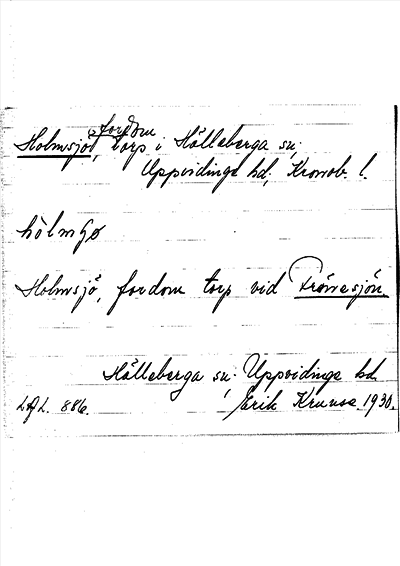 Holmsjö, fordom torp i Hälleberga sn;
Uppvidinge hd; Kronob. l.
hòlmʃø
Holmsjö, fordom torp vid Trönesjön.
Hälleberga sn; Uppvidinge hd.
LAL. 886. Erik Krauss 1930.